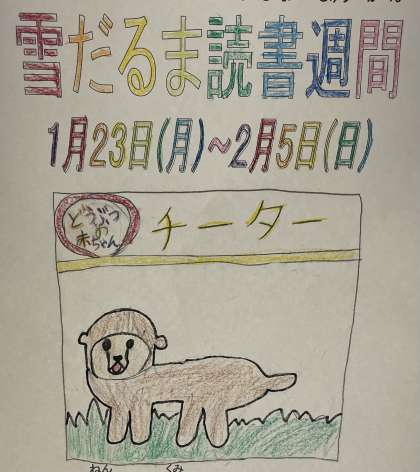 雪だるま読書週間
1月23日(月)~2月5日(日)
どうぶつ
の
赤ちゃん
チーター
ねん くみ